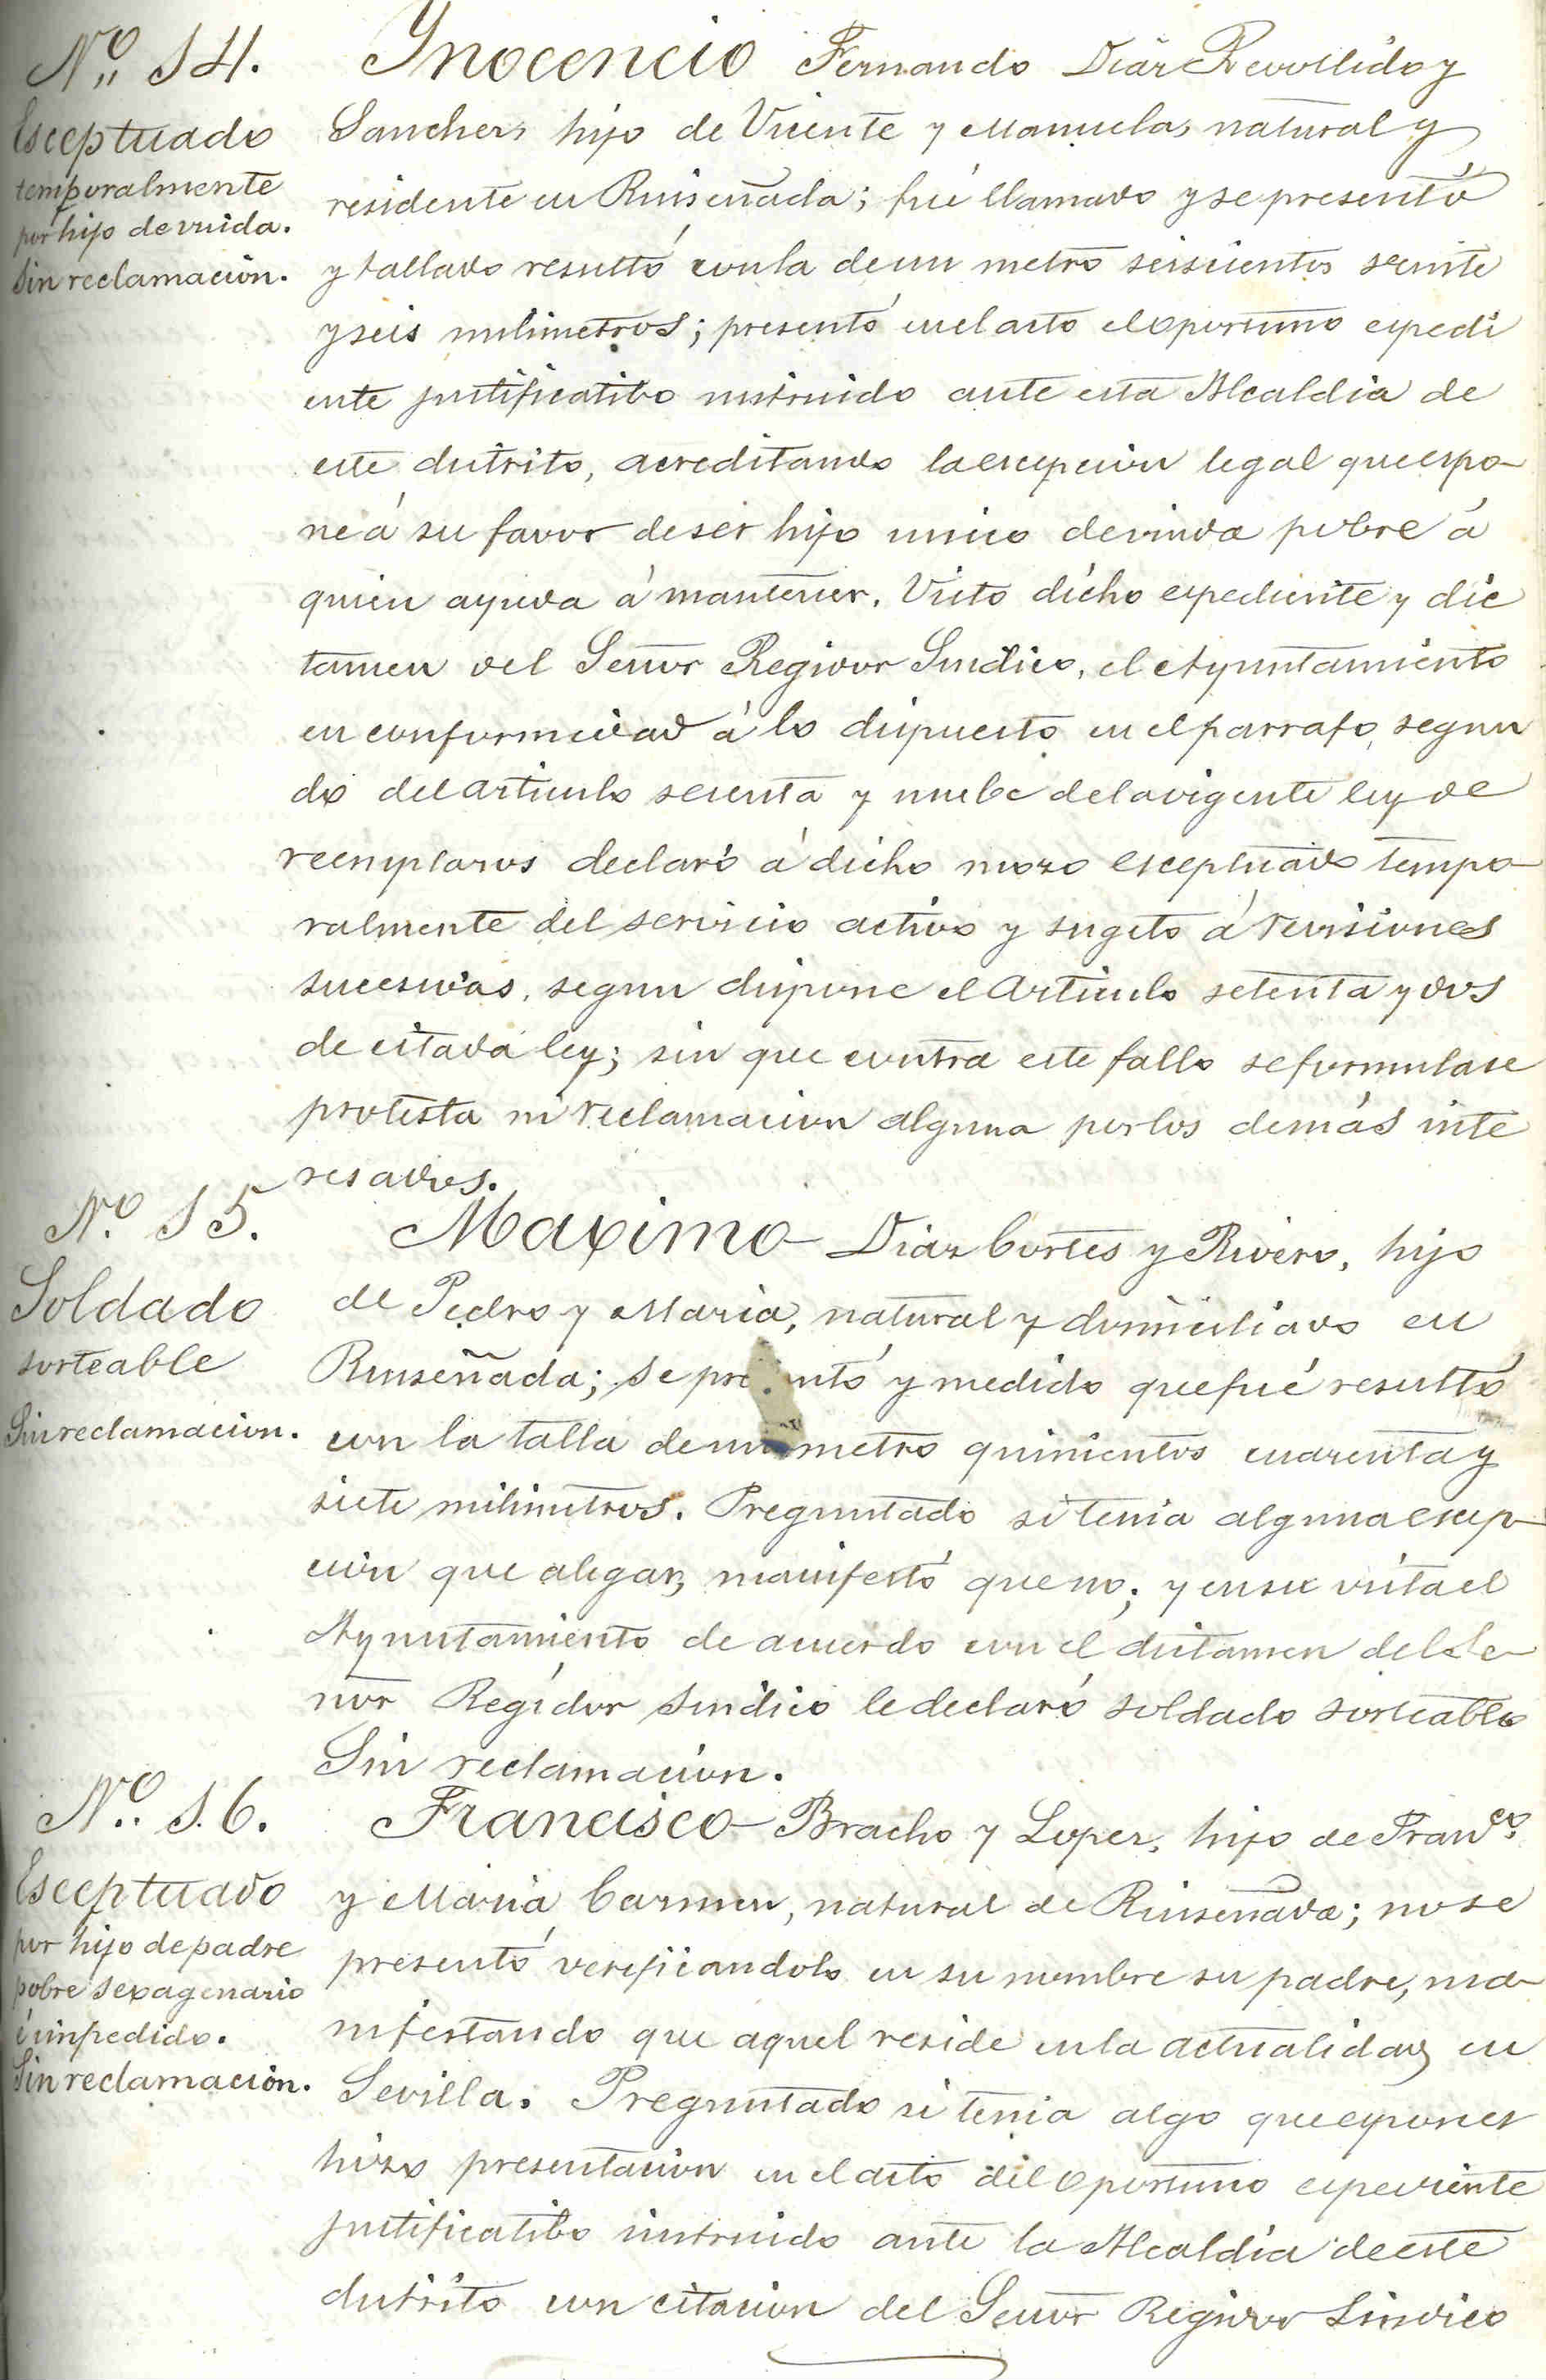 Nº 14.
Esceptuado
temporalmente
por hijo de viuda.
Sin reclamacion.
Ynocencio Fernando Diaz Revollido y
Sanchez, hijo de Vicente y Manuela, natural y
residente en Ruiseñada; fué llamado y se presentó
y tallado resultó con la de un metro seiscientos veinte
y seis milimetros; presentó en el acto el oportuno espedi
ente justificatibo instruido ante esta Alcaldia de
este distrito, acreditando la escepcion legal que espo-
ne á su favor de ser hijo unico de viuda pobre á
quien ayuda á mantener. Visto dicho espediente y dic
tamen del Señor Regidor Sindico, el Ayuntamiento
en conformidad á lo dispuesto en el parrafo segun
do del articulo sesenta y nuebe de la vigente ley de
reemplazos declaró á dicho mozo esceptuado tempo-
ralmente del servicio activo y sugeto á revisiones
sucesivas, segun dispone el Articulo setenta y dos
de citada ley; sin que contra este fallo se formulase
protesta ni reclamacion alguna por los demás inte
resados.
Nº 15.
Soldado
sorteable
Sin reclamacion.
Maximo Diaz Cortes y Rivero, hijo
de Pedro y Maria, natural y domiciliado en
Ruiseñada; se presentó y medido que fué resultó
con la talla de un metro quinientos cuarenta y
siete milimetros. Preguntado si tenia alguna escep-
cion que alegar, manifestó que no; y en su vista el
Ayuntamiento de acuerdo con el dictamen del Se-
ñor Regidor Sindico le declaró soldado sorteable
Sin reclamacion.
Nº 16.
Esceptuado
por hijo de padre
pobre sexagenario
é impedido.
Sin reclamacion.
Francisco Bracho y Lopez, hijo de Franco.
y Maria Carmen, natural de Ruiseñada; no se
presentó verificandolo en su nombre su padre, ma-
nifestando que aquel reside en la actualidad en
Sevilla. Preguntado si tenia algo que esponer
hizo presentacion en el acto del oportuno espediente
justificatibo instruido ante la Alcaldia de este
distrito con citacion del Señor Regidor Sindico